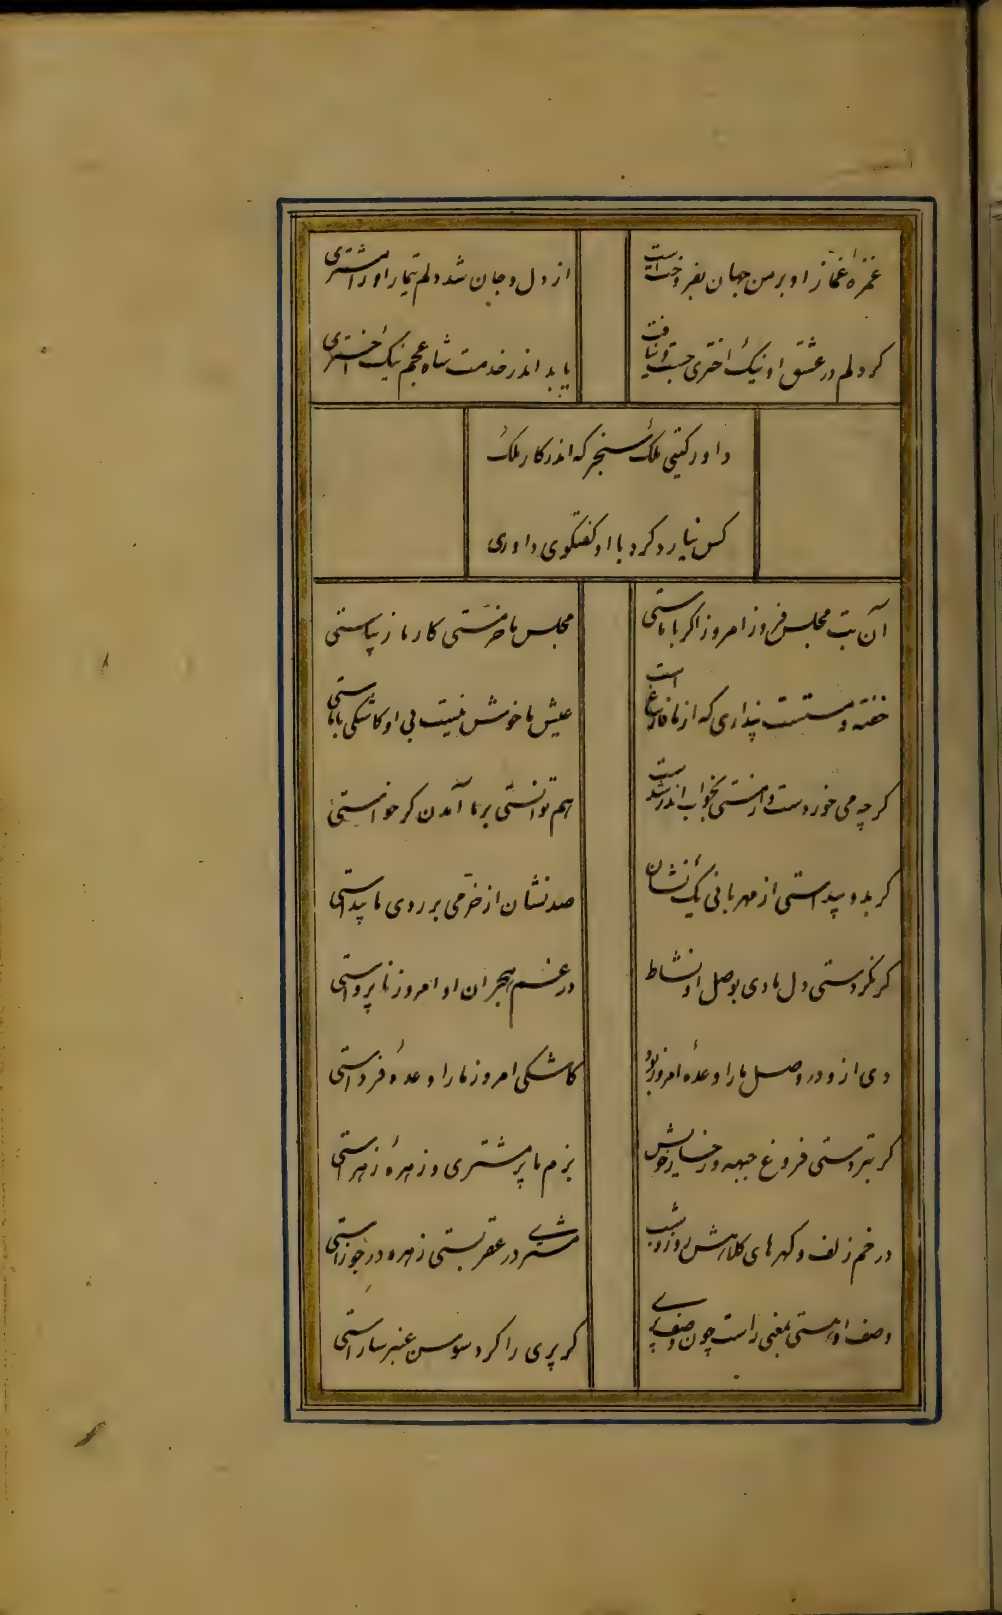 غمزه غماز او بر من جهان بفروختست
از دل و جان شد دلم تیمار او را مشتری
کر دلم در عشق او نیک اختری جست و نیافت
یابد اندر خدمت شاه عجم نیک اختری
داور کیتی ملک سنجر که اندر کار ملک
کس نیارد کرد با او کفتکوی داوری
آن بت مجلس فروز امروز اکر با ماستی
مجلس ما خرمستی کار ما زیباستی
خفته و مستست پنداری که از ما فارغ است
عیش ما خوش نیست بی او کاشکی با ماستی
کر چه می خوردست و از مستی بخواب اندر شدست
هم توانستی بر ما آمدن کر خواستی
کر بدو پیداستی از مهربانی یک نشان
صد نشان از خرمی بر روی ما پیداستی
کر نکردستی دل ما دی بوصل او نشاط
در غم هجران او امروز ناپرواستی
دی ازو در وصل ما را وعده امروز بود
کاشکی امروز ما را وعده فرداستی
کر نبردستی فروغ جبهه و رخسار خویش
بزم ما پر مشتری و زهره زهراستی
در خم زلف و کهرهای کلاهش روز و شب
مشتری در عقربستی زهره در جوزاستی
وصف او هستی بمعنی راست چون وصف پری
کر پری را کرد سوسن عنبر ساراستی